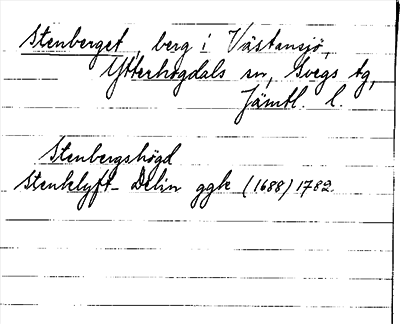 Stenberget, berg i Västansjö,
Ytterhogdals sn, Svegs tg,
Jämtl. l.
Stenbergshögd
Stenklyft- Delin ggk (1688) 1782